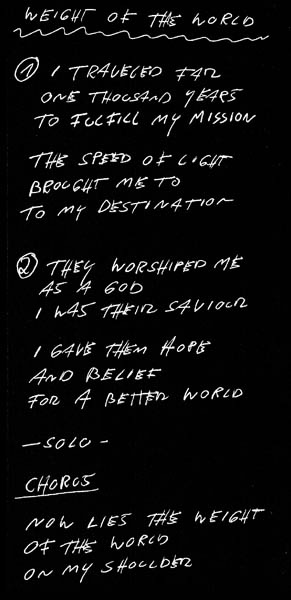 WEIGHT OF THE WORLD
① I TRAVELED FAR
ONE THOUSAND YEARS
TO FULFILL MY MISSION
THE SPEED OF LIGHT
BROUGHT ME TO
TO MY DESTINATION
② THEY WORSHIPED ME
AS A GOD
I WAS THEIR SAVIOUR
I GAVE THEM HOPE
AND BELIEF
FOR A BETTER WORLD
—SOLO-
CHORUS
NOW LIES THE WEIGHT
OF THE WORLD
ON MY SHOULDER